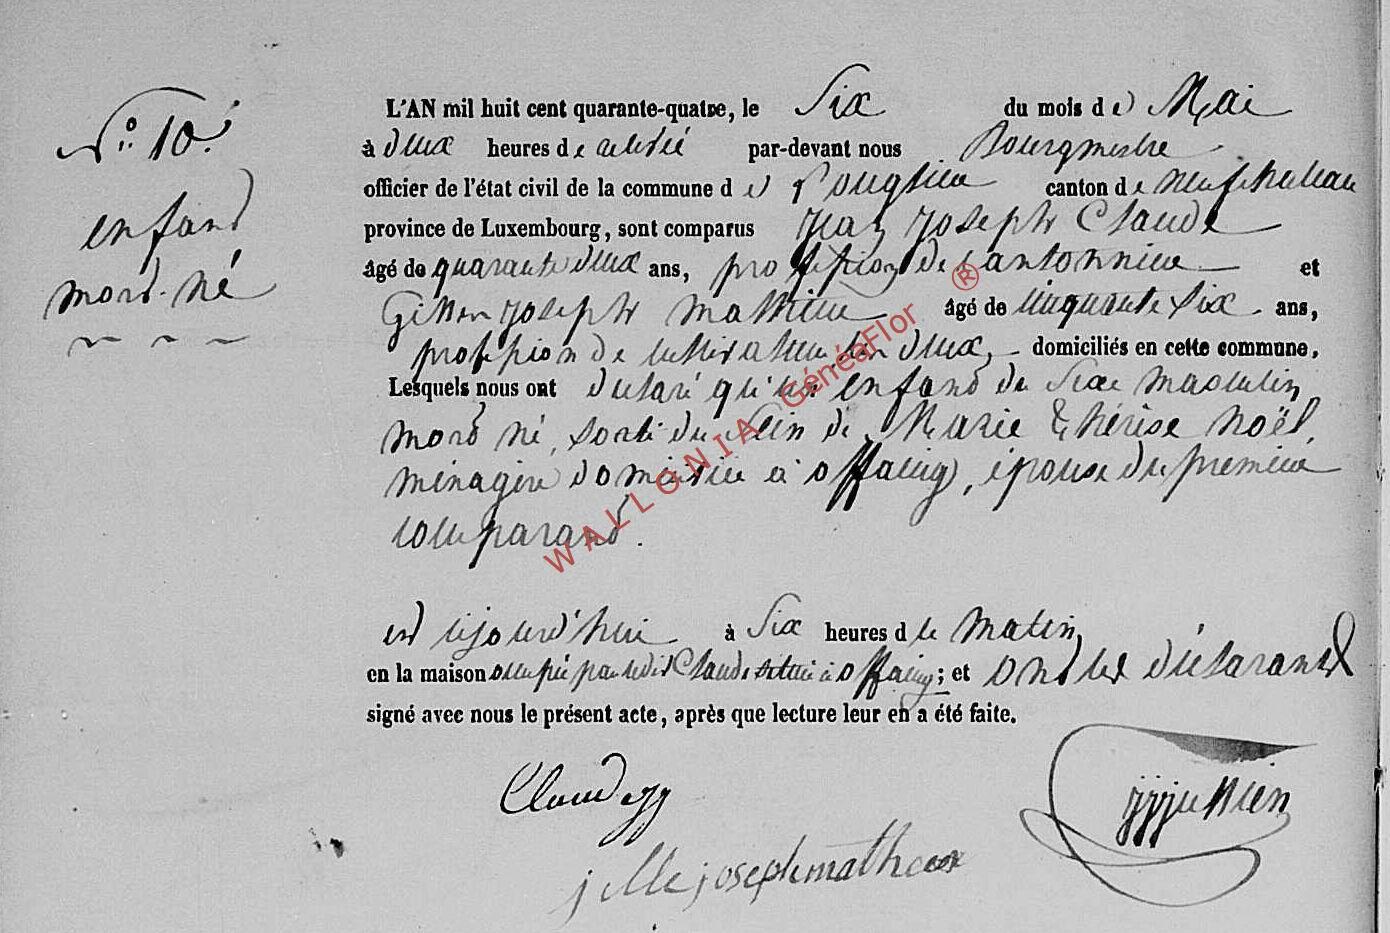 N° 10.
enfand
mord-né
L'AN mil huit cent quarante-quatre, le Six du mois de Mai
à deux heures de relevée par-devant nous Bourgmestre
officier de l'état civil de la commune de canton de neufchateau
province de Luxembourg, sont comparus Jean Joseph Claude
âgé de quarante deux ans, profession de Cantonnier et
Joseph Mathieu âgé de cinquante Six ans,
profession de cultivateur, les deux, domiciliés en cette commune,
Lesquels nous ont déclaré qu'un enfand du Sexe masculin
mord né, sorti du Sein de Marie Thérèse Noël,
ménagère domiciliée à Offaing, épouse du premier
comparand.
est cejourd'hui à Six heures du Matin
en la maison occupée par ledit Claude située à Offaing; et ont les déclarants
signé avec nous le présent acte, après que lecture leur en a été faite.
Claude jj
joseph mathieu
WALLONIA GénéaFlor ®